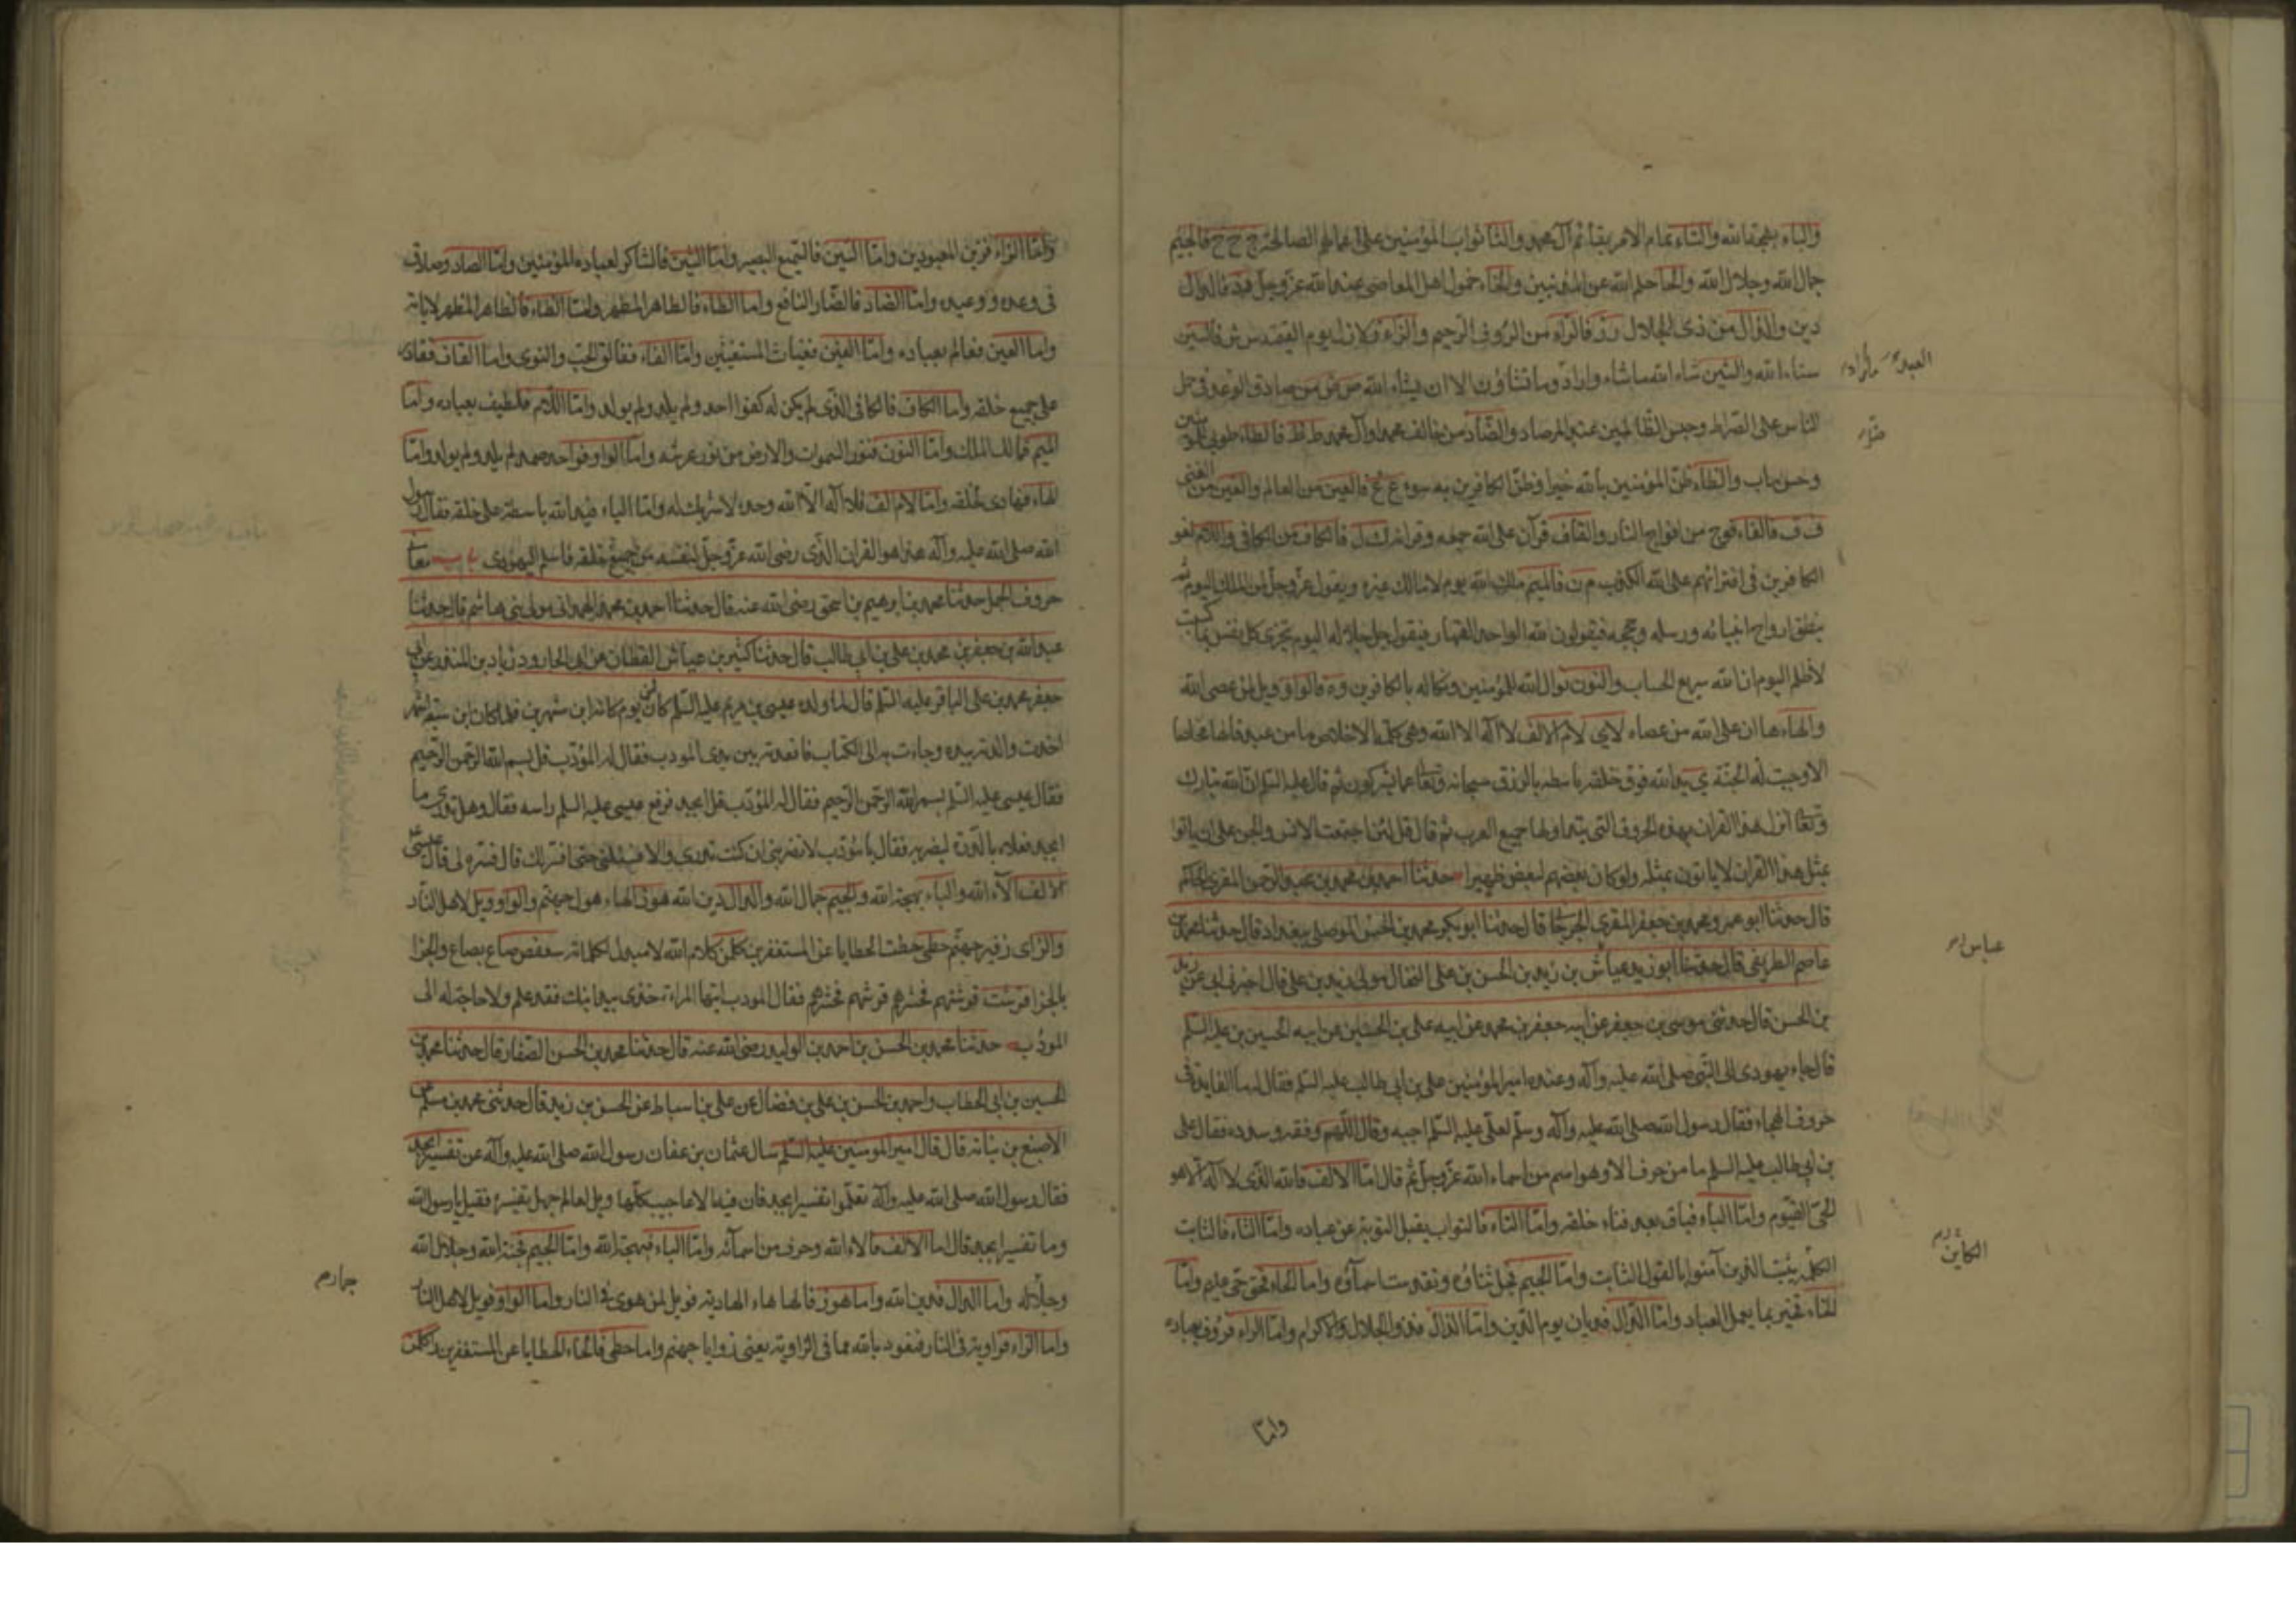 والباء بهجة الله والتاء تمام الامر بقائم آل محمد والثا ثواب المؤمنين على اعمالهم الصالحة ج ح خ فالجيم
جمال الله وجلال الله والحا حلم الله عن المذنبين والخاء خمول اهل المعاصى عند الله عز وجل د ذ فالدال
دين والذال من ذى الجلال ر ز فالراء من الرؤف الرحيم والزاء زلازل يوم القيمة س ش فالسين
سناء الله والشين شاء الله ما شاء واراد وما تشاؤن الا ان يشاء الله ص ض من صادق الوعد فى حمل
الناس على الصراط وحبس الظالمين عند المرصاد والضاد من خالف محمدا وآل محمد ط ظ فالطاء طوبى للمؤمنين
وحسن ماب والظاء ظن المؤمنين بالله خيرا وظن الكافرين به سوء ع غ فالعين من العالم والغين من الغنى
ف ق فالفاء فوج من افواج النار والقاف قرآن على الله جمعه وقرانه ك ل فالكاف من الكافى واللام لغو
الكافرين فى افترائهم على الله الكذب م ن فالميم ملك الله يوم لا مالك غيره ويقول عز وجل لمن الملك اليوم ثم
ينطق ارواح انبيائه ورسله وحججه فيقولون لله الواحد القهار فيقول جل جلاله اليوم تجزى كل نفس بما كسبت
لا ظلم اليوم ان الله سريع الحساب والنون نوال الله للمؤمنين ونكاله بالكافرين و ه فالواو ويل لمن عصى الله
والهاء هان على الله من عصاه لا ى لام الالف لا اله الا الله وهى كلمة الاخلاص ما من عبد قالها مخلصا
الا وجبت له الجنة ى يد الله فوق خلقه باسطه بالرزق سبحانه وتعا عما يشركون ثم قال عليه السلم ان الله تبارك
وتعا انزل هذا القران بهذه الحروف التى يتداولها جميع العرب ثم قال قل لئن اجتمعت الانس والجن على ان ياتوا
بمثل هذا القران لا ياتون بمثله ولو كان بعضهم لبعض ظهيرا حدثنا احمد بن محمد بن عبد الرحمن المقرى الحاكم
قال حدثنا ابو عمرو محمد بن جعفر المقرى الجرجانى قال حدثنا ابو بكر محمد بن الحسن الموصلى ببغداد قال حدثنا محمد بن
عاصم الطريفى قال حدثنا ابو زيد عياش بن زيد بن الحسن بن على الكحال مولى زيد بن على قال اخبرنى ابى عن زيد
بن الحسن قال حدثنى موسى بن جعفر عن ابيه جعفر بن محمد عن ابيه على بن الحسين عن ابيه الحسين بن عليه السلم
قال جاء يهودى الى النبى صلى الله عليه وآله وعنده امير المؤمنين على بن ابى طالب عليه السلم فقال له ما الفايدة فى
حروف الهجاء فقال رسول الله صلى الله عليه وآله وسلم لعلى عليه السلم اجبه وقال اللهم وفقه وسدده فقال على
بن ابى طالب عليه السلم ما من حرف الا وهو اسم من اسماء الله عز وجل ثم قال اما الالف فالله الذى لا اله الا هو
الحى القيوم واما الباء فباق بعد فناء خلقه واما التاء فالتواب يقبل التوبة عن عباده واما الثاء فالثابت
الكل يثبت الذين آمنوا بالقول الثابت واما الجيم فجل ثناؤه وتقدست اسماؤه واما الحاء فحق حى عليم واما
الخاء فخبير بما يعمل العباد واما الدال فديان يوم الدين واما الذال فذو الجلال والاكرام واما الراء فرؤف بعباده
واما
عباس
الكاين
واما الزاء فزين المعبودين واما السين فالسميع البصير واما الشين فالشاكر لعباده المؤمنين واما الصاد فصادق
فى وعده ووعيده واما الضاد فالضار النافع واما الطاء فالطاهر المطهر واما الظاء فالظاهر المظهر لاياته
واما العين فعالم بعباده واما الغين فغياث المستغيثين واما الفاء ففالق الحب والنوى واما القاف فقادر
على جميع خلقه واما الكاف فالكافى الذى لم يكن له كفوا احد ولم يلد ولم يولد واما اللام فلطيف بعباده واما
الميم فمالك الملك واما النون فنور السموات والارض من نور عرشه واما الواو فواحد صمد لم يلد ولم يولد واما
الهاء فهادى لخلقه واما لام الف فلا اله الا الله وحده لا شريك له واما الياء فيد الله باسطة على خلقه فقال رسول
الله صلى الله عليه وآله هذا هو القران الذى رضى الله عز وجل لنفسه من جميع خلقه فاسلم اليهودى باب معانى
حروف الجمل حدثنا محمد بن ابرهيم بن اسحق رضى الله عنه قال حدثنا احمد بن محمد الهمدانى مولى بنى هاشم قال حدثنا
عبد الله بن جعفر بن محمد بن على بن ابى طالب قال حدثنا كثير بن عياش القطان عن ابى الجارود زياد بن المنذر عن ابى
جعفر محمد بن على الباقر عليه السلم قال لما ولد عيسى بن مريم عليه السلم كان ابن يوم كانه ابن شهرين فلما كان ابن سبعة اشهر
اخذت والدته بيده وجاءت به الى الكتاب فاقعدته بين يدى المودب فقال له المؤدب قل بسم الله الرحمن الرحيم
فقال عيسى عليه السلم بسم الله الرحمن الرحيم فقال له المؤدب قل ابجد فرفع عيسى عليه السلم راسه فقال وهل تدرى ما
ابجد فعلاه بالدرة ليضربه فقال يا مؤدب لا تضربنى ان كنت تدرى والا فسئلنى حتى افسر لك قال فسره لى قال عيسى
الالف آلاء الله والباء بهجة الله والجيم جمال الله والدال دين الله هوز الهاء هول جهنم والواو ويل لاهل النار
والزاى زفير جهنم حطى حطت الخطايا عن المستغفرين كلمن كلام الله لا مبدل لكلماته سعفص صاع بصاع والجزا
بالجزا قرشت قرشهم فحشرهم فقال المودب ايتها المراة خذى بيد ابنك فقد علم ولا حاجة له الى
المؤدب حدثنا محمد بن الحسن بن احمد بن الوليد رضى الله عنه قال حدثنا محمد بن الحسن الصفار قال حدثنا محمد بن
الحسين بن ابى الخطاب واحمد بن الحسن بن على بن فضال عن على بن اسباط عن الحسن بن زيد قال حدثنى محمد بن سالم عن
الاصبغ بن نباته قال قال امير المومنين عليه السلم سال عثمان بن عفان رسول الله صلى الله عليه وآله عن تفسير ابجد
فقال رسول الله صلى الله عليه وآله تعلموا تفسير ابجد فان فيه الاعاجيب كلها ويل لعالم جهل تفسيره فقيل يا رسول الله
وما تفسير ابجد قال اما الالف فالاء الله وحرف من اسمائه واما الباء فبهجة الله واما الجيم فجنة الله وجلال الله
وجماله واما الدال فدين الله واما هوز فالهاء هاء الهاوية فويل لمن هوى فى النار واما الواو فويل لاهل النار
واما الزاء فزاوية فى النار فنعوذ بالله مما فى الزاوية يعنى زوايا جهنم واما حطى فالحاء الخطايا عن المستغفرين